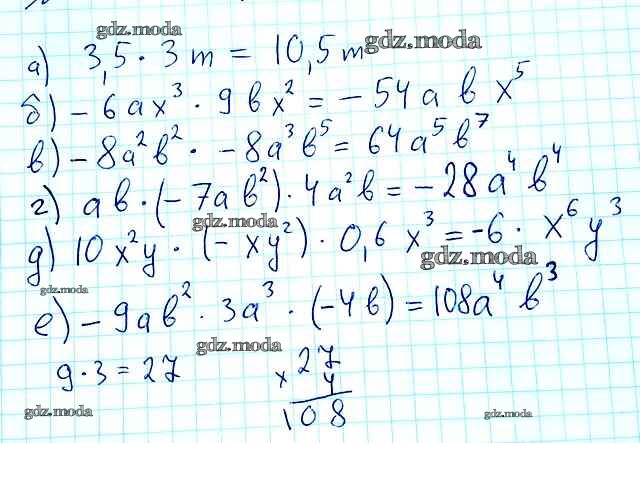 gdz.moda
а) 3,5 · 3 m = 10,5 m gdz.moda
б) - 6ax³ · 9bx² = - 54a b x⁵
в) - 8a²b² · - 8a³b⁵ = 64a⁵b⁷
г) ab · (- 7ab²) · 4a²b = - 28a⁴b⁴
gdz.moda
д) 10x²y · (- xy²) · 0,6 x³ = -6 · x⁶y³
gdz.moda
gdz.moda
е) - 9ab² · 3a³ · (-4b) = 108a⁴ b³
gdz.moda
9 · 3 = 27
27
× 4
108
gdz.moda
gdz.moda